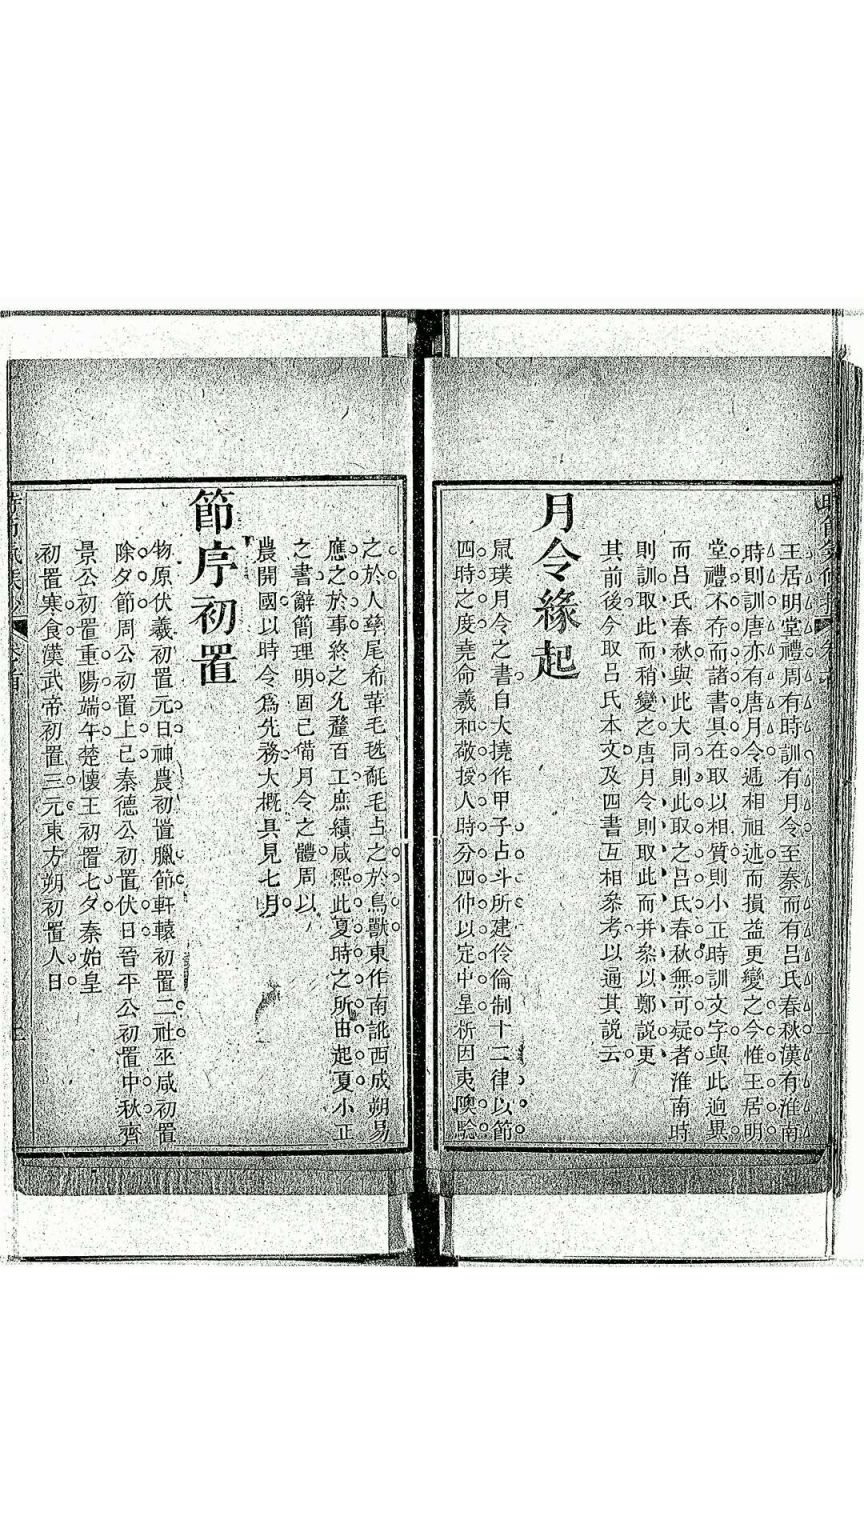 王居明堂禮周有時訓有月令至秦而有呂氏春秋漢有淮南
時則訓唐亦有唐月令遞相祖述而損益更變之今惟王居明
堂禮不存而諸書具在取以相質則小正時訓文字與此逈異
而呂氏春秋與此大同則此取之呂氏春秋無可疑者淮南時
則訓取此而稍變之唐月令則取此而并叅以鄭説更
其前後今取呂氏本文及四書互相叅考以通其説云
月令緣起
鼠璞月令之書自大撓作甲子占斗所建伶倫制十二律以節
四時之度堯命羲和敬授人時分四仲以定中星析因夷隩驗
之於人孳尾希革毛毨氄毛占之於鳥獸東作南訛西成朔易
應之於事終之允釐百工庶績咸熙此夏時之所由起夏小正
之書辭簡理明固己備月令之體周以
農開國以時令爲先務大槪具見七月
節序初置
物原伏羲初置元日神農初置臘節軒轅初置二社巫咸初置
除夕節周公初置上巳秦德公初置伏日晉平公初置中秋齊
景公初置重陽端午楚懷王初置七夕秦始皇
初置寒食漢武帝初置三元東方朔初置人日